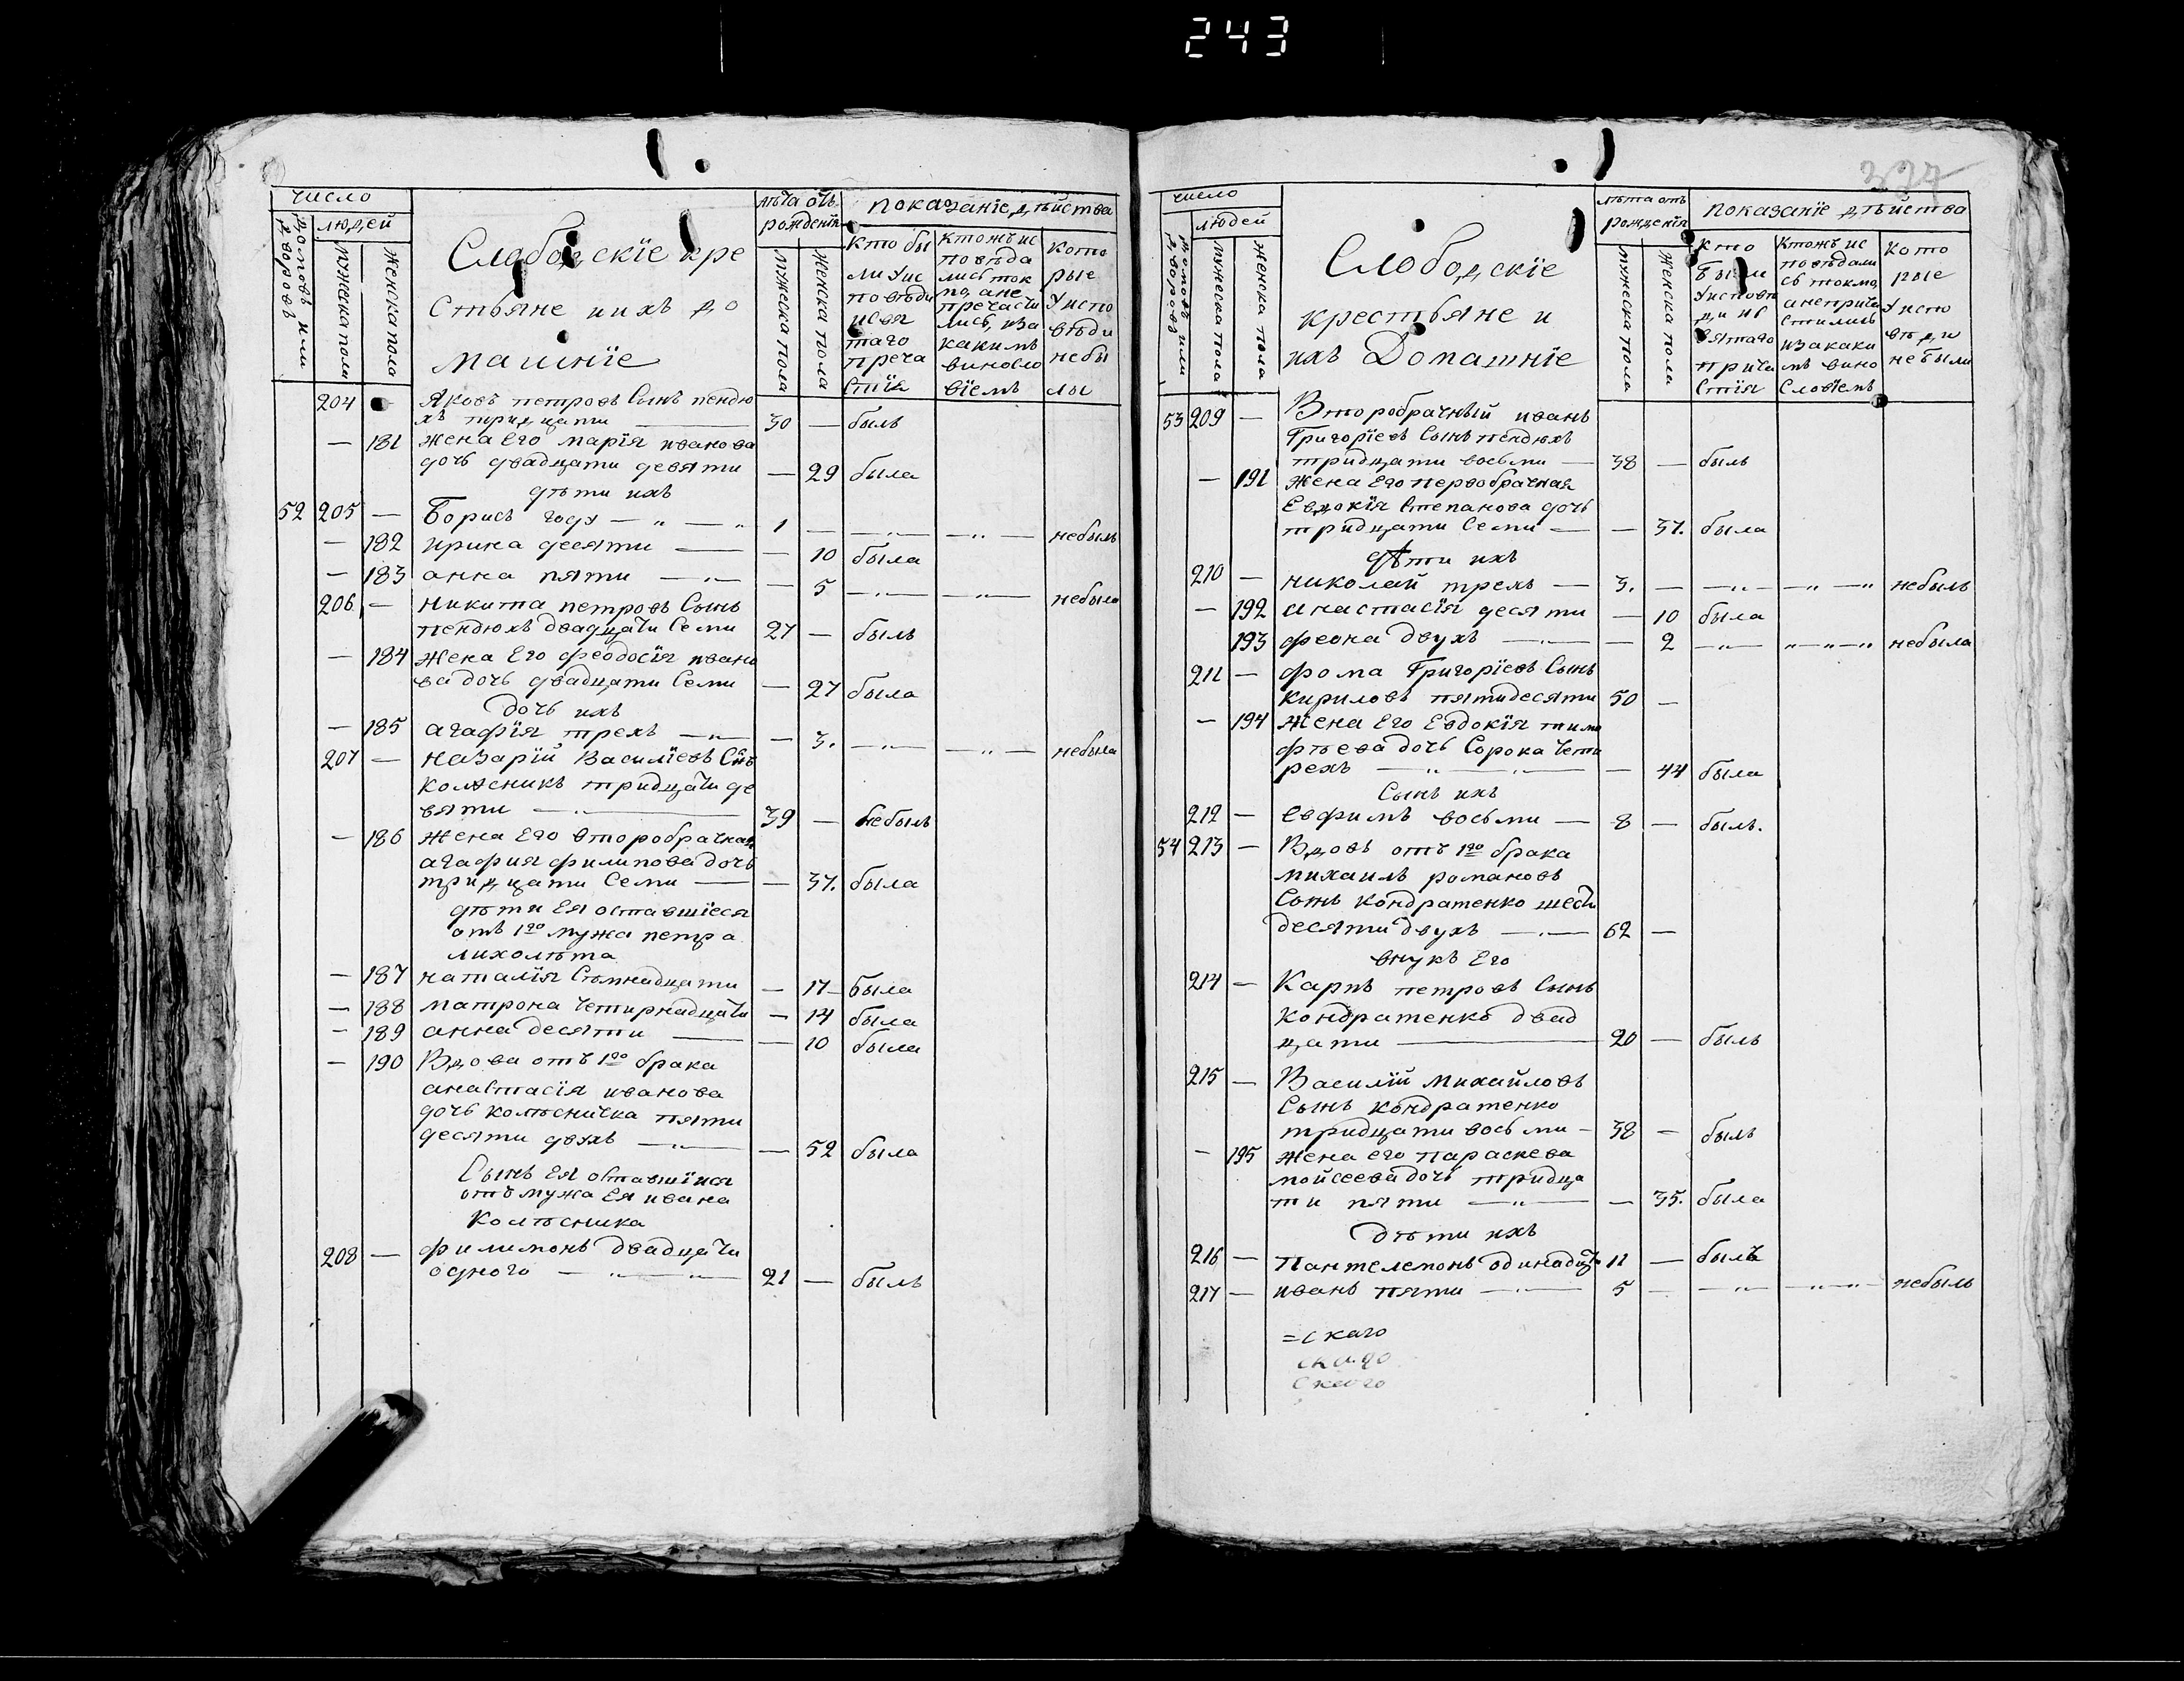 243
число
домовъ или дворовъ
людей
мужеска пола
женска пола
Слободскїе кре
стьяне и ихъ до
машнїе
лѣта отъ
рожденїя
мужеска пола
женска пола
показанїе дѣйства
кто бы
ли у ис
повѣди
и свя
таго
прича
стїя
ктожъ ис
повѣда
лись ток
мо, а не
причасти
лись, и за
какимъ
виносло
вїемъ
кото
рые
у испо
вѣди
небы
лы
204 — Яковъ петровъ Сынъ пендю
хъ тридцати — 30 — былъ
— 181 жена Его марїя иванова
дочь двадцати девяти — 29 была
дѣти ихъ
52 205 — Борисъ году — „ — „ 1 — — „ — — „ — небылъ
— 182 ирина десяти — — 10 была
— 183 анна пяти — „ — — 5 — „ — — „ — небыла
206 — никита петровъ Сынъ
пендюхъ двадцати Семи 27 — былъ
— 184 жена Его феодосїя ивано
ва дочь двадцати Семи — 27 была
дочь ихъ
— 185 агафїя трехъ — „ — — 3. — „ — — „ — небыла
207 — назарїй Василїевъ Снъ
колѣсникъ тридцати де
вяти — „ — 39 — небылъ
— 186 жена Его второбрачная
агафия филипова дочь
тридцати Семи — — 37. была
дѣти Ея оставшїеся
отъ 1го мужа петра
лихолѣта
— 187 наталїя Съмнадцати — 17 — была
— 188 матрона четирнадцати — 14 была
— 189 анна десяти — — 10 была
— 190 Вдова отъ 1го брака
анастасїя иванова
дочь колѣсничка пяти
десяти двухъ — „ — — 52 была
Сынъ Ея оставшїися
отъ мужа Ея ивана
Колѣсника
208 — филимонъ двадцати
одного — „ — „ — 21 — былъ
337
число
домовъ или дворовъ
людей
мужеска пола
женска пола
Слободскїе
крестьяне и
ихъ Домашнїе
лѣта отъ
рожденїя
мужеска пола
женска пола
показанїе дѣйства
кто
были
у исповѣ
ди и с
вятаго
прича
стїя
ктожъ ис
повѣдали
сь токмо,
а неприча
стились
и за каки
мъ вино
словїемъ
кото
рые
у испо
вѣди
небыли
53 209 — Второбрачный иванъ
Григорїевъ Сынъ пендюхъ
тридцати восьми — 38 — былъ
— 191 жена Его первобрачная
Евдокїя Степанова дочь
тридцати Семи — — 37. была
дѣти ихъ
210 — николай трехъ — 3. — — „ — — „ — „ небылъ
— 192 анастасїя десяти — 10 была
193 феона двухъ — „ — — 2 — „ — „ — „ — „ небыла
211 — фома Григорїевъ Сынъ
кириловъ пятидесяти 50 —
— 194 жена Его Евдокїя тимо
фѣева дочь Сорока чети
рехъ — „ — „ — — 44 была
Сынъ ихъ
212 — евфимъ восьми — 8 — былъ.
54 213 — Вдовъ отъ 1го брака
михаилъ романовъ
Сынъ кондратенко шесть
десяти двухъ — „ — 62 —
внукъ Его
214 — Карпъ петровъ Сынъ
кондратенко двад
цати — 20 — былъ
215 — Василїй михайловъ
Сынъ кондратенко
тридцати восьми — 38 — былъ
— 195 жена его параскева
мойсеева дочь тридца
ти пяти — „ — — 35. была
дѣти ихъ
216 — пантелемонъ одинадца 11 — былъ
217 — иванъ пяти — „ — 5 — — „ — — „ — небылъ
= скаго
скаго
скаго